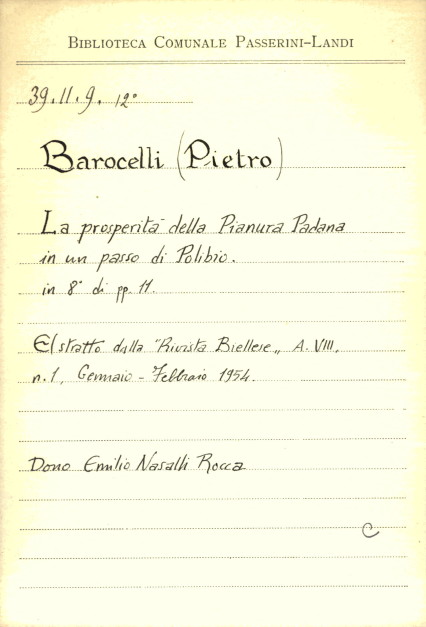 BIBLIOTECA COMUNALE PASSERINI-LANDI
39.II.9. 12°
Barocelli (Pietro)
La prosperità della Pianura Padana
in un passo di Polibio.
in 8° di pp. 11.
Estratto dalla "Rivista Biellese„ A. VIII,
n. 1, Gennaio - Febbraio 1954.
Dono Emilio Nasalli Rocca
C